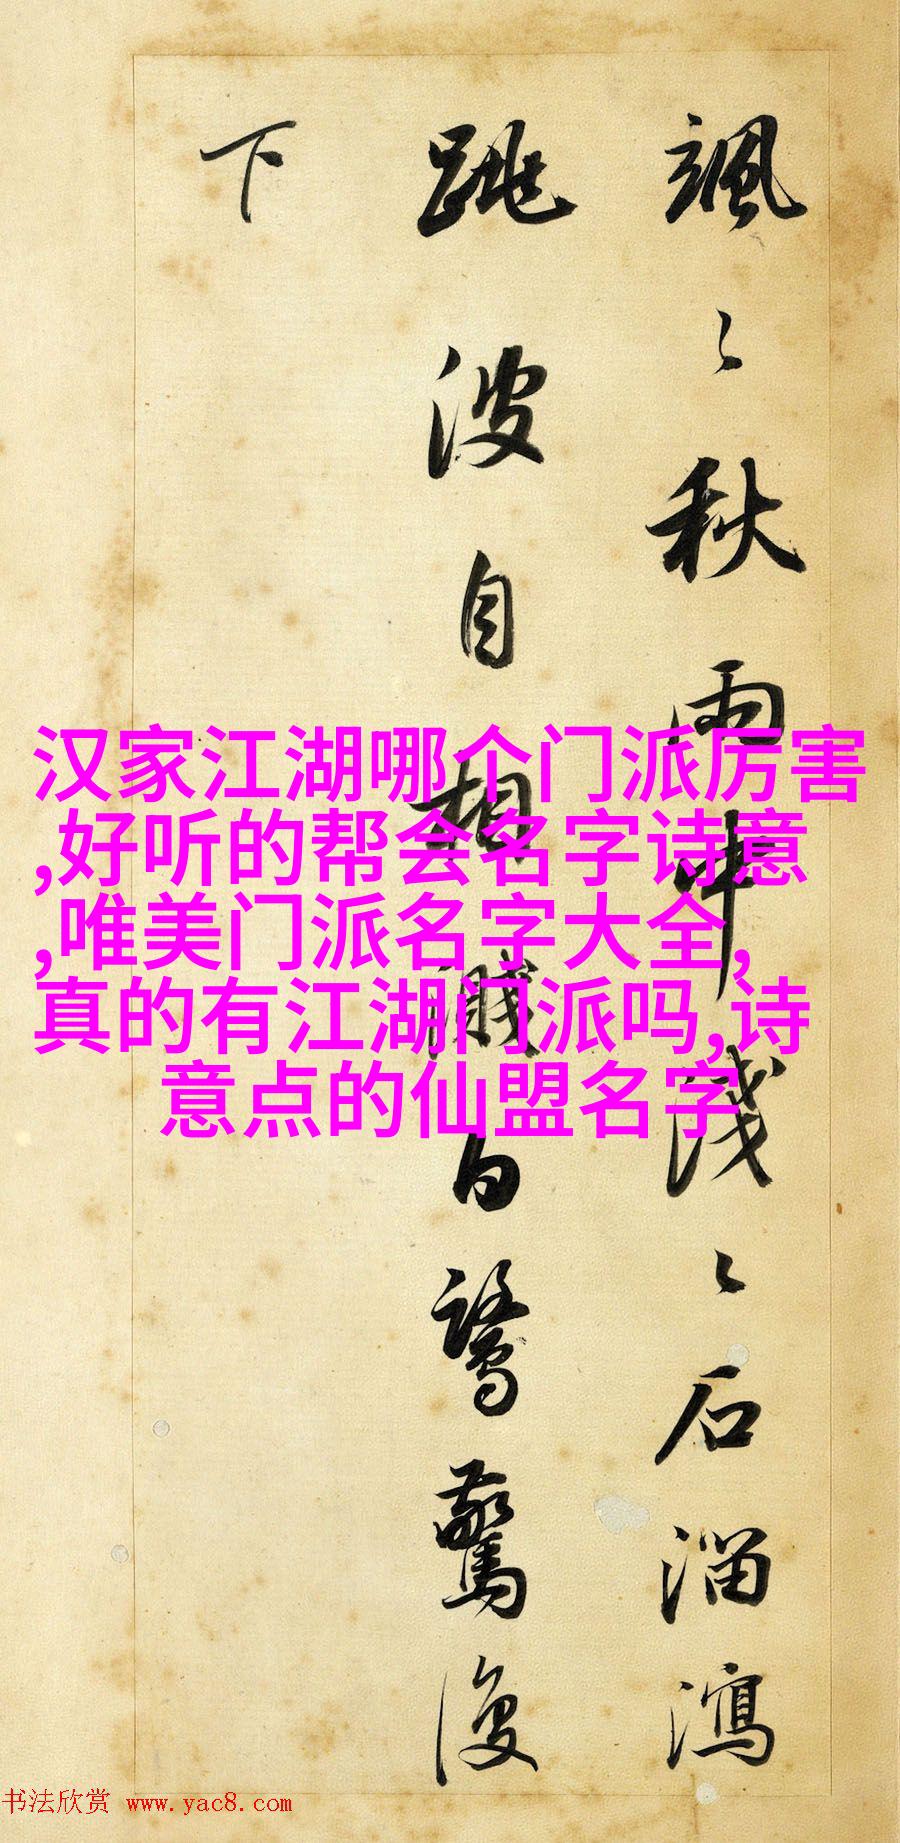 颯〻秋雨中淺〻石溜瀉
跳波自相濺白鷺驚復
下
汉家江湖哪个门派厉害
,好听的帮会名字诗意
,唯美门派名字大全,
真的有江湖门派吗,诗
意点的仙盟名字
书法欣赏 www.yac8.com